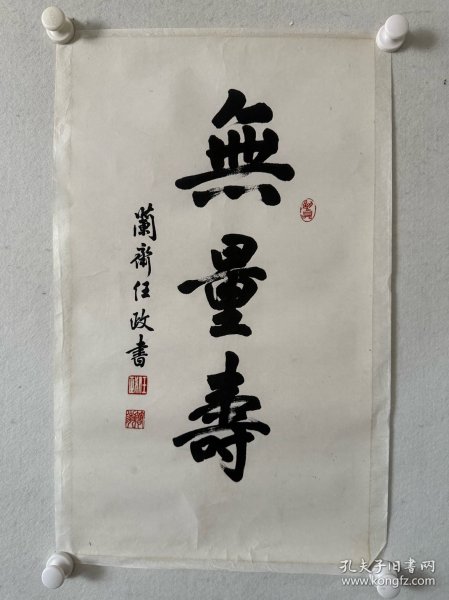 無量壽
蘭齋任政書
孔夫子旧书网
www.kongfz.com